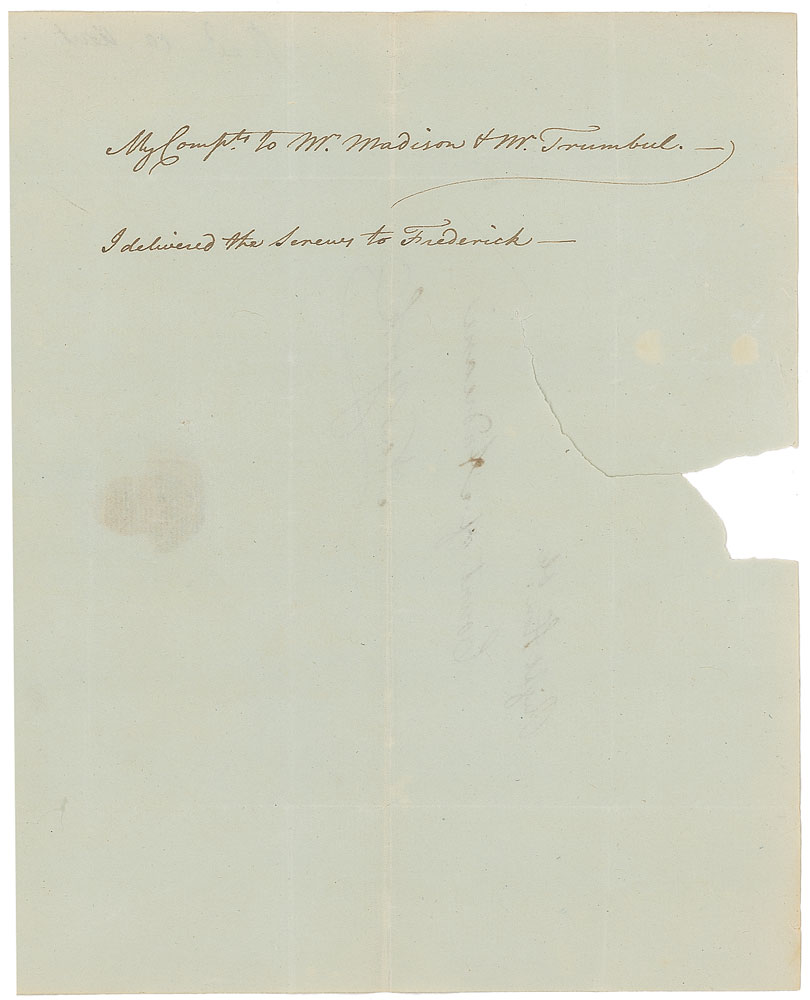 My Comp.ts to Mr. Madison & Mr. Trumbul. —
I delivered the Screws to Frederick —